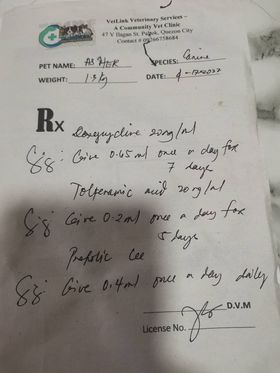 VetLink Veterinary Services –
A Community Vet Clinic
47 V Ilagan St. Paltok, Quezon City
Contact # 09266758684
PET NAME: ASHER SPECIES: Canine
WEIGHT: 1.3 kg DATE:
Rx
Doxycycline 20mg/ml
Sig: Give 0.65 ml once a day for
7 days
Tolfenamic acid 20mg/ml
Sig: Give 0.2 ml once a day for
5 days
Prefolic Cee
Sig: Give 0.4ml once a day daily
D.V.M
License No.